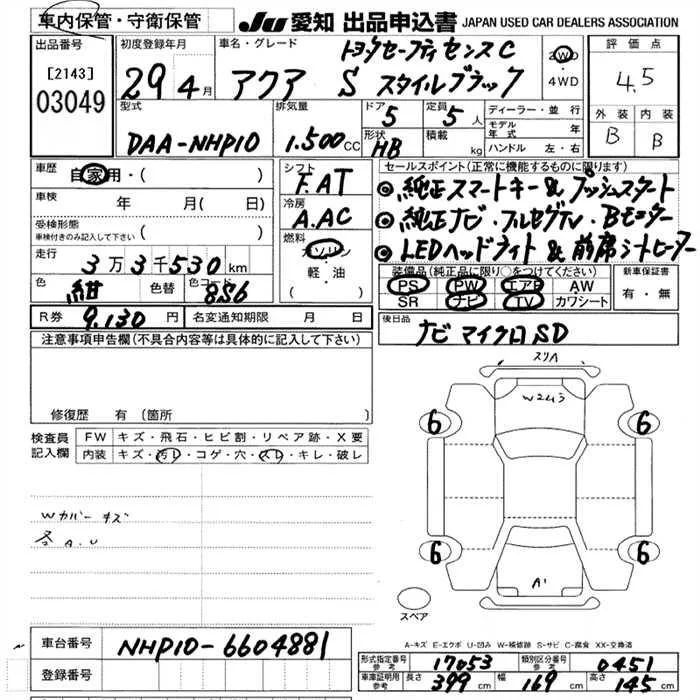 車内保管・守衛保管
JU 愛知 出品申込書 JAPAN USED CAR DEALERS ASSOCIATION
出品番号 [2143] 03049
初度登録年月 29 4月
車名・グレード トヨタセーフティセンスC
アクア S スタイルブラック
2WD・4WD
評価点 4.5
外装 B 内装 B
型式 DAA-NHP10
排気量 1.500cc
ドア 5 形状 HB
定員 5人 積載 kg
ディーラー・並行
モデル年式 年
ハンドル 左・右
車歴 自家用・( )
車検 年 月( 日)
受検形態 車検付きのみ記入して下さい ( )
走行 3万3千530km
色 紺 色替 色コード 8S6
シフト F.AT
冷房 A.AC
燃料 ガソリン・軽・油 ( )
セールスポイント(正常に機能するものに限ります)
◎ 純正スマートキー&プッシュスタート
◎ 純正ナビ・フルセグTV・Bモニター
◎ LEDヘッドライト&前席シートヒーター
装備品(純正品に限り○をつけてください)
PS PW エアB AW
SR ナビ TV カワシート
新車保証書 有・無
R券 9.130円 名変通知期限 月 日
後日品 ナビマイクロSD
注意事項申告欄(不具合内容等は具体的に記入して下さい)
修復歴 有(箇所 )
検査員記入欄
FW キズ・飛石・ヒビ割・リペア跡・X要
内装 キズ・汚レ・コゲ・穴・スレ・キレ・破レ
Wカバーキズ
各A.U
スリA
6 6
6 6
A1
スペア
A-キズ E-エクボ U-凹み W-補修跡 S-サビ C-腐食 XX-交換済
車台番号 NHP10-6604881
登録番号
形式指定番号参考 17053 類別区分番号参考 0451
車庫証明用参考 長さ 399cm 幅 169cm 高さ 145cm